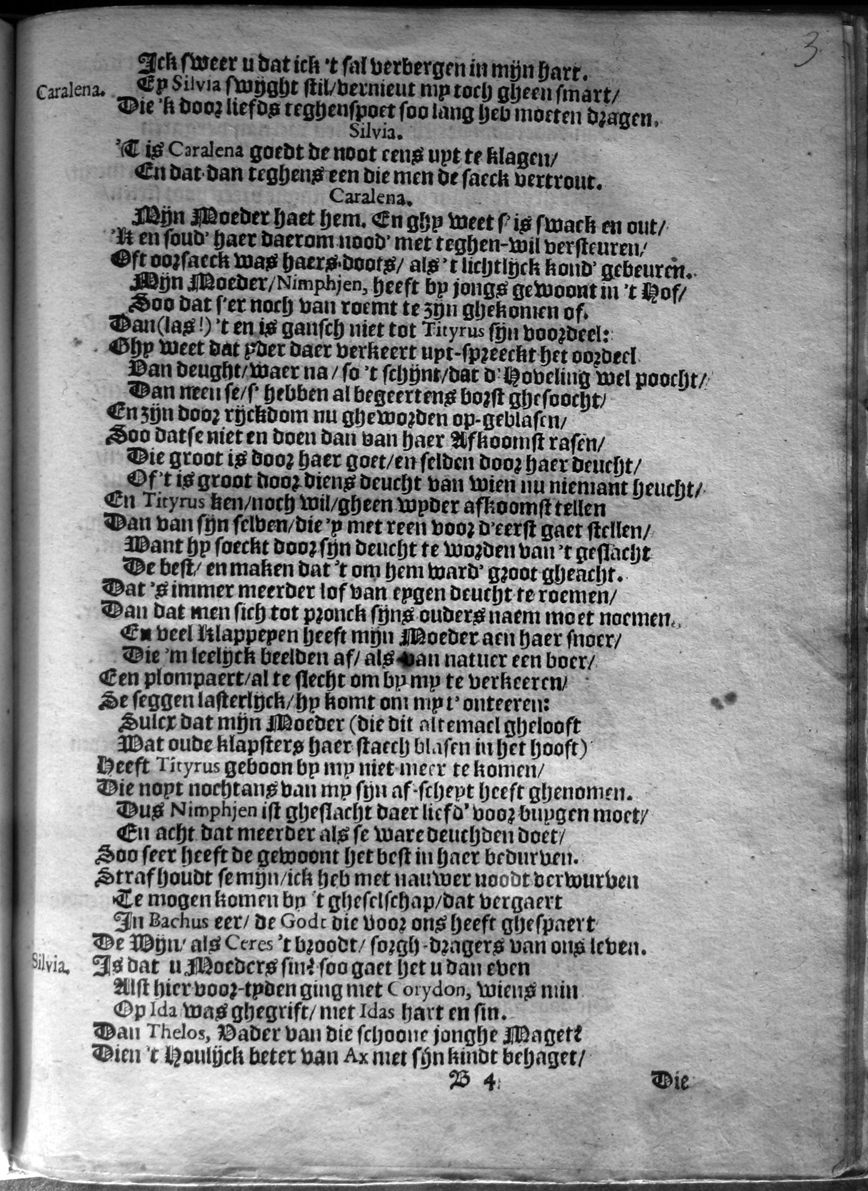 3
Ick sweer u dat ick 't sal verbergen in mijn hart.
Caralena. Ey Silvia swijght stil/vernieut my toch gheen smart/
Die 'k door liefds teghenspoet soo lang heb moeten dragen.
Silvia.
'T is Caralena goedt de noot eens uyt te klagen/
En dat dan teghens een die men de saeck vertrout.
Caralena.
Mijn Moeder haet hem. En ghy weet s' is swack en out/
'K en soud' haer daerom nood' met teghen-wil versteuren/
Oft oorsaeck was haers doots/ als 't lichtlijck kond' gebeuren.
Mijn Moeder/Nimphjen, heeft by jongs gewoont in 't Hof/
Soo dat s'er noch van roemt te zijn ghekomen of.
Dan (las!) 't en is gansch niet tot Tityrus sijn voordeel:
Ghy weet dat yder daer verkeert uyt-spreeckt het oordeel
Van deught/waer na/ so 't schijnt/dat d' Hoveling wel poocht/
Dan neen se/s' hebben al begeertens borst ghesoocht/
En zijn door rijckdom nu gheworden op-geblasen/
Soo datse niet en doen dan van haer Afkoomst rasen/
Die groot is door haer goet/en selden door haer deucht/
Of 't is groot door diens deucht van wien nu niemant heucht/
En Tityrus ken/noch wil/gheen wyder afkoomst tellen
Dan van sijn selven/die 'y met reen voor d'eerst gaet stellen/
Want hy soeckt door sijn deucht te worden van 't geslacht
De best/ en maken dat 't om hem ward' groot gheacht.
Dat 's immer meerder lof van eygen deucht te roemen/
Dan dat men sich tot pronck sijns ouders naem moet noemen.
En veel klappeyen heeft mijn Moeder aen haer snoer/
Die 'm leelijck beelden af/ als van natuer een boer/
Een plompaert/al te slecht om by my te verkeeren/
Se seggen lasterlijck/hy komt om my t' onteeren:
Sulcx dat mijn Moeder (die dit altemael ghelooft
Wat oude klapsters haer staech blasen in het hooft)
Heeft Tityrus geboon by my niet meer te komen/
Die noyt nochtans van my sijn af-scheyt heeft ghenomen.
Dus Nimphjen ist gheslacht daer liefd' voor buygen moet/
En acht dat meerder als se ware deuchden doet/
Soo seer heeft de gewoont het best in haer bedurven.
Straf houdt se mijn/ick heb met nauwer noodt verwurven
Te mogen komen by 't gheselschap/dat vergaert
In Bachus eer/ de Godt die voor ons heeft ghespaert
De Wijn/ als Ceres 't broodt/ sorgh-dragers van ons leven.
Silvia. Is dat u Moeders sin? soo gaet het u dan even
Alst hier voor-tyden ging met Corydon, wiens min
Op Ida was ghegrift/ met Idas hart en sin.
Dan Thelos, Vader van die schoone jonghe Maget?
Dien 't Houlijck beter van Ax met sijn kindt behaget/
B 4. Die